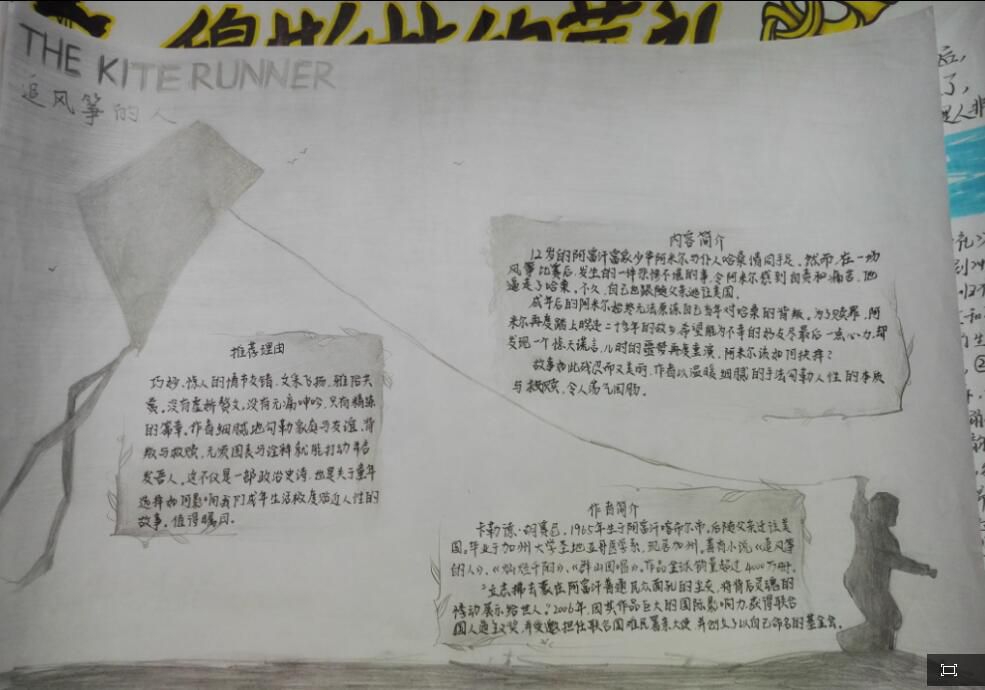 THE KITE RUNNER
追风筝的人
内容简介
12岁的阿富汗富家少爷阿米尔与仆人哈桑情同手足。然而,在一场
风筝比赛后,发生的一件悲惨不堪的事,令阿米尔感到自责和痛苦,他
逼走了哈桑,不久,自己也跟随父亲逃往美国。
成年后的阿米尔始终无法原谅自己当年对哈桑的背叛。为了赎罪,阿
米尔再度踏上暌违二十多年的故乡,希望能为不幸的好友尽最后一点心力,却
发现一个惊天谎言,儿时的噩梦再度重演,阿米尔该如何抉择?
故事如此残忍而又美丽,作者以温暖细腻的手法勾勒人性的本质
与救赎,令人荡气回肠。
推荐理由
巧妙、惊人的情节交错,文采飞扬,雅俗共
赏。没有虚矫赘文,没有无病呻吟,只有精炼
的篇章。作者细腻地勾勒家庭与友谊、背
叛与救赎,无须图表与诠释就能打动并启
发吾人。这不仅是一部政治史诗,也是关于童年
选择如何影响我们成年生活极度贴近人性的
故事。值得瞩目。
作者简介
卡勒德·胡赛尼,1965年生于阿富汗喀布尔市,后随父亲迁往美
国。毕业于加州大学圣地亚哥医学系,现居加州。著有小说《追风筝
的人》、《灿烂千阳》、《群山回唱》。作品全球销量超过4000万册。
"立志拂去蒙在阿富汗普通民众面孔的尘灰,将背后灵魂的
悸动展示给世人。"2006年,因其作品巨大的国际影响力,获得联合
国人道主义奖,并受邀担任联合国难民署亲大使,并创立了以自己命名的基金会。